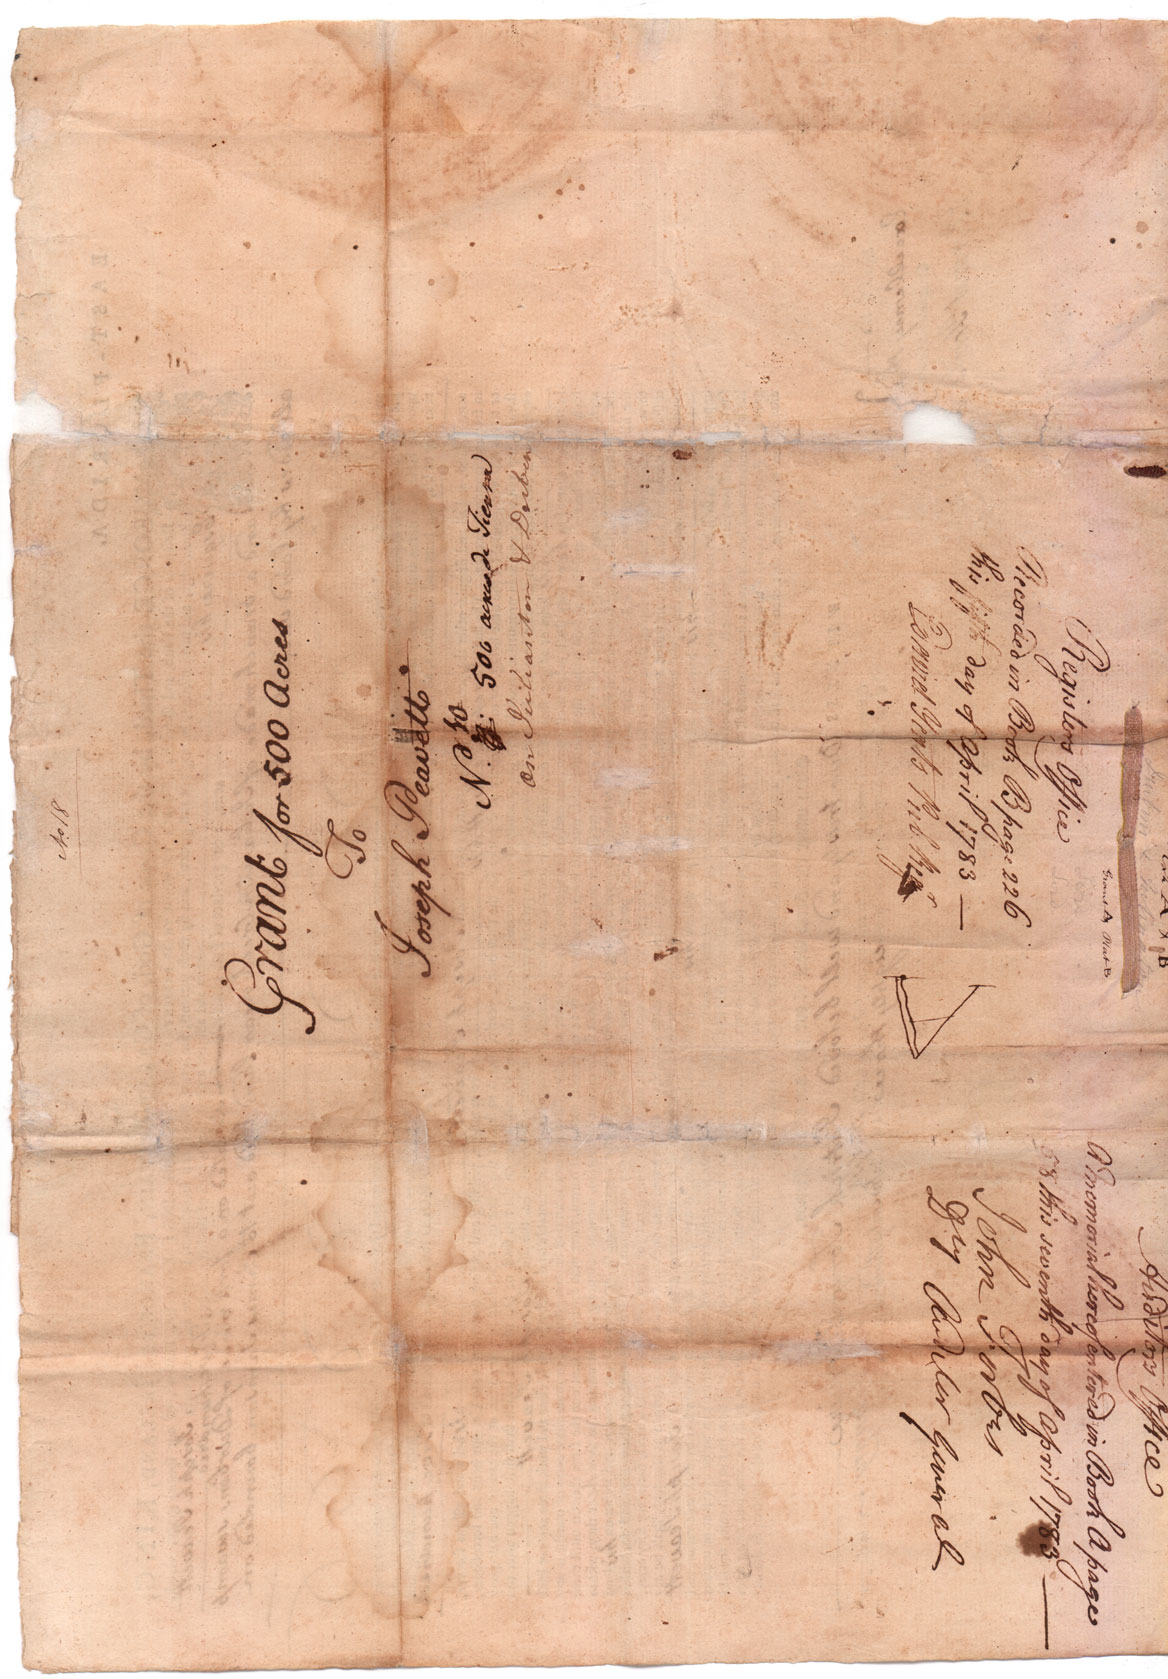 No 18
Grant for 500 Acres
To
Joseph Peavett
No 10
500 acres de Tierra
on Julianton &
Registers Office
Recorded in Book B page 226
this fifth day of April 1783 —
Auditors Office
A memorial hereof entered in Book A page
58 this seventh day of April 1783 —
John Forbes
Dpy Auditor General